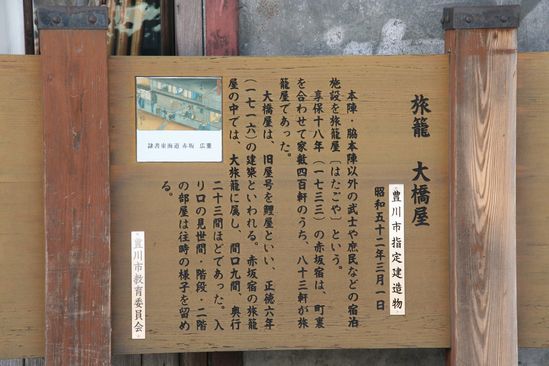 旅籠 大橋屋
豊川市指定建造物
昭和五十二年三月一日
本陣・脇本陣以外の武士や庶民などの宿泊
施設を旅籠屋〔はたごや〕という。
享保十八年(一七三三)の赤坂宿は、町裏
を合わせて家数四百軒のうち、八十三軒が旅
籠屋であった。
大橋屋は、旧屋号を鯉屋といい、正徳六年
(一七一六)の建築といわれる。赤坂宿の旅籠
屋の中では、大旅籠に属し、間口九間、奥行
二十三間ほどであった。入
り口の見世間・階段・二階
の部屋は往時の様子を留め
る。
隷書東海道 赤坂 広重
豊川市教育委員会